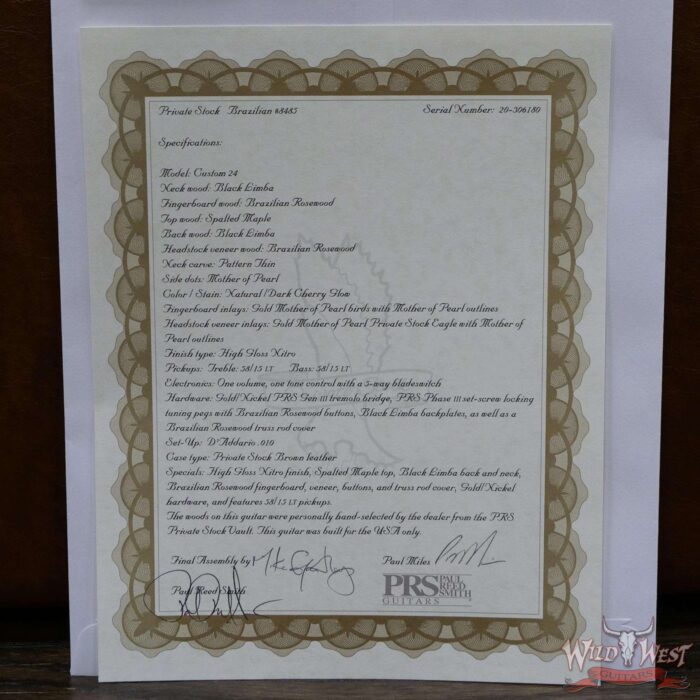 Private Stock Brazilian #8485 Serial Number: 20-306180
Specifications:
Model: Custom 24
Neck wood: Black Limba
Fingerboard wood: Brazilian Rosewood
Top wood: Spalted Maple
Back wood: Black Limba
Headstock veneer wood: Brazilian Rosewood
Neck carve: Pattern Thin
Side dots: Mother of Pearl
Color / Stain: Natural /Dark Cherry Glow
Fingerboard inlays: Gold Mother of Pearl birds with Mother of Pearl outlines
Headstock veneer inlays: Gold Mother of Pearl Private Stock Eagle with Mother of
Pearl outlines
Finish type: High Gloss Nitro
Pickups: Treble: 58/15 LT Bass: 58/15 LT
Electronics: One volume, one tone control with a 5-way bladeswitch
Hardware: Gold/Nickel PRS Gen III tremolo bridge, PRS Phase III set-screw locking
tuning pegs with Brazilian Rosewood buttons, Black Limba backplates, as well as a
Brazilian Rosewood truss rod cover
Set-Up: D'Addario .010
Case type: Private Stock Brown leather
Specials: High Gloss Nitro finish, Spalted Maple top, Black Limba back and neck,
Brazilian Rosewood fingerboard, veneer, buttons, and truss rod cover, Gold/Nickel
hardware, and features 58/15 LT pickups.
The woods on this guitar were personally hand-selected by the dealer from the PRS
Private Stock Vault. This guitar was built for the USA only.
Final Assembly by
Paul Miles
Paul Reed Smith
PRS PAUL REED SMITH
GUITARS
WILD WEST
GUITARS